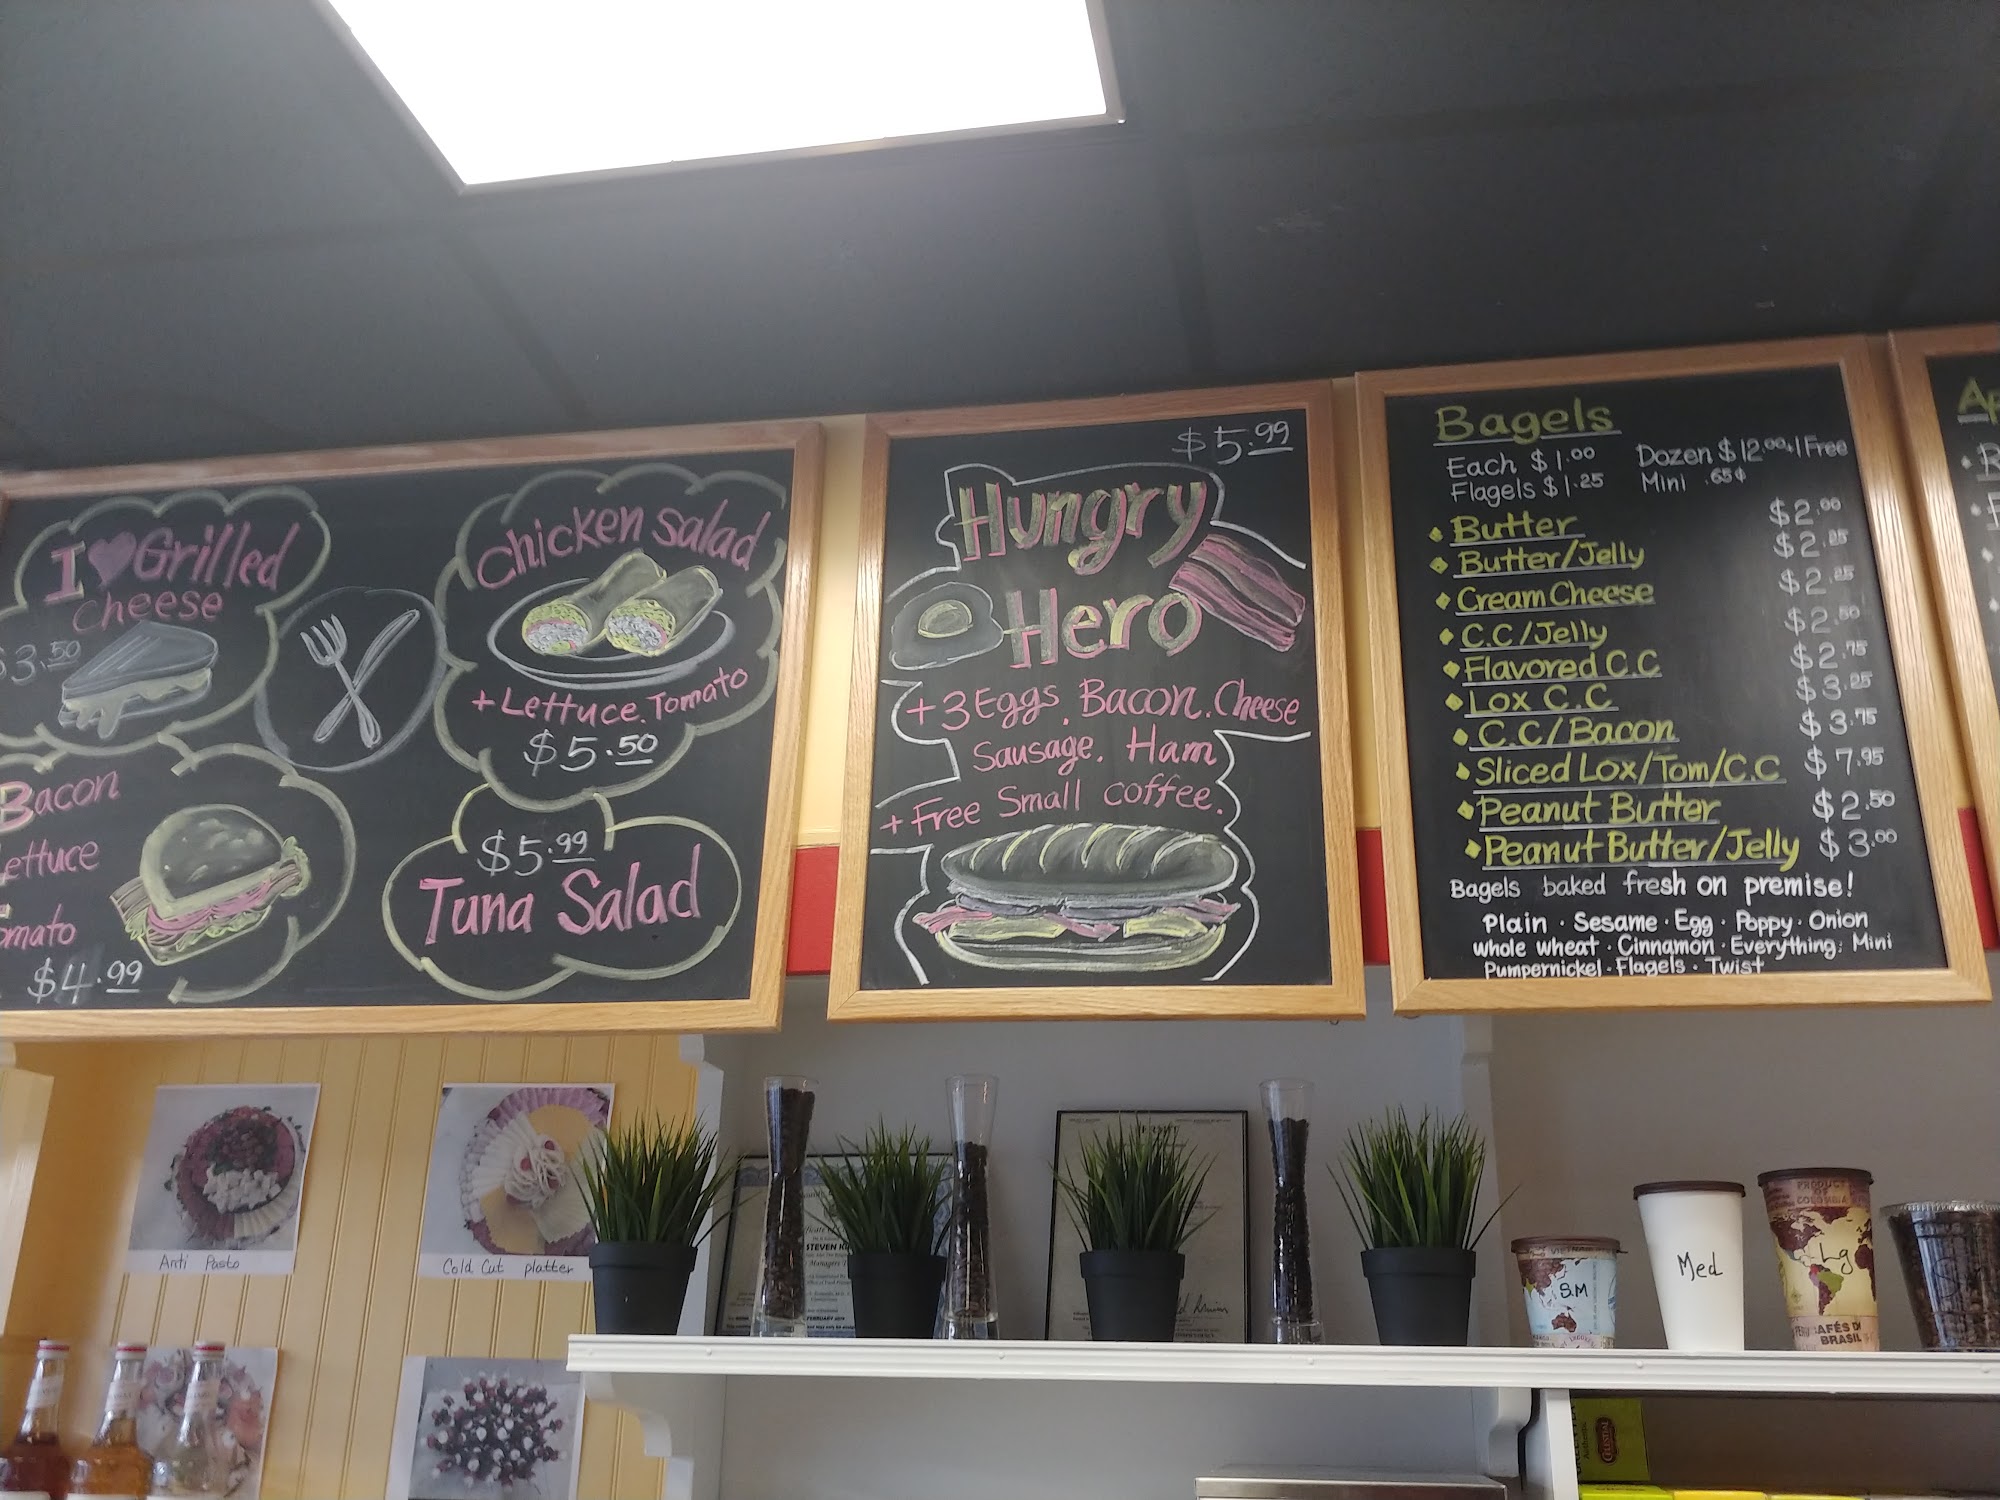 I Grilled
Cheese
$3.50
Chicken salad
+ Lettuce. Tomato
$5.50
Bacon
$4.99
$5.99
Tuna Salad
$5.99
Hungry
Hero
+ 3 Eggs. Bacon. Cheese
Sausage. Ham
+ Free Small coffee.
Bagels
Each $1.00
Flagels $1.25
Dozen $12.00+1 Free
Mini .65¢
Butter $2.00
Butter/Jelly $2.25
Cream Cheese $2.25
C.C/Jelly $2.50
Flavored C.C $2.75
Lox C.C $3.25
C.C/Bacon $3.75
Sliced Lox/Tom/C.C $7.95
Peanut Butter $2.50
Peanut Butter/Jelly $3.00
Bagels baked fresh on premise!
Plain · Sesame · Egg · Poppy · Onion
whole wheat · Cinnamon · Everything · Mini
Pumpernickel · Flagels · Twist
Anti Pasto
Cold Cut platter
STEVEN
FEBRUARY
S.M
Med
PRODUCT
OF
COLOMBIA
Lg
BRASIL